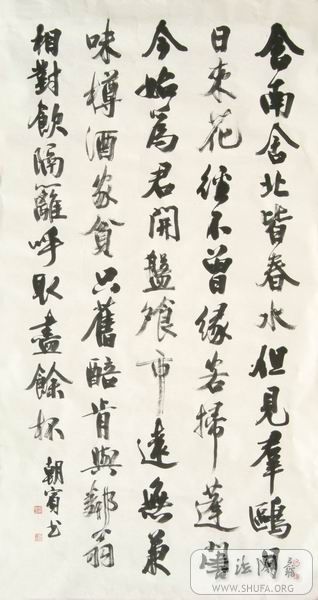 舍南舍北皆春水但見羣鷗日
日來花徑不曾緣客掃蓬門
今始爲君開盤飧市遠無兼
味樽酒家貧只舊醅肯與鄰翁
相對飲隔籬呼取盡餘杯
朝賓书
WWW.SHUFA.ORG